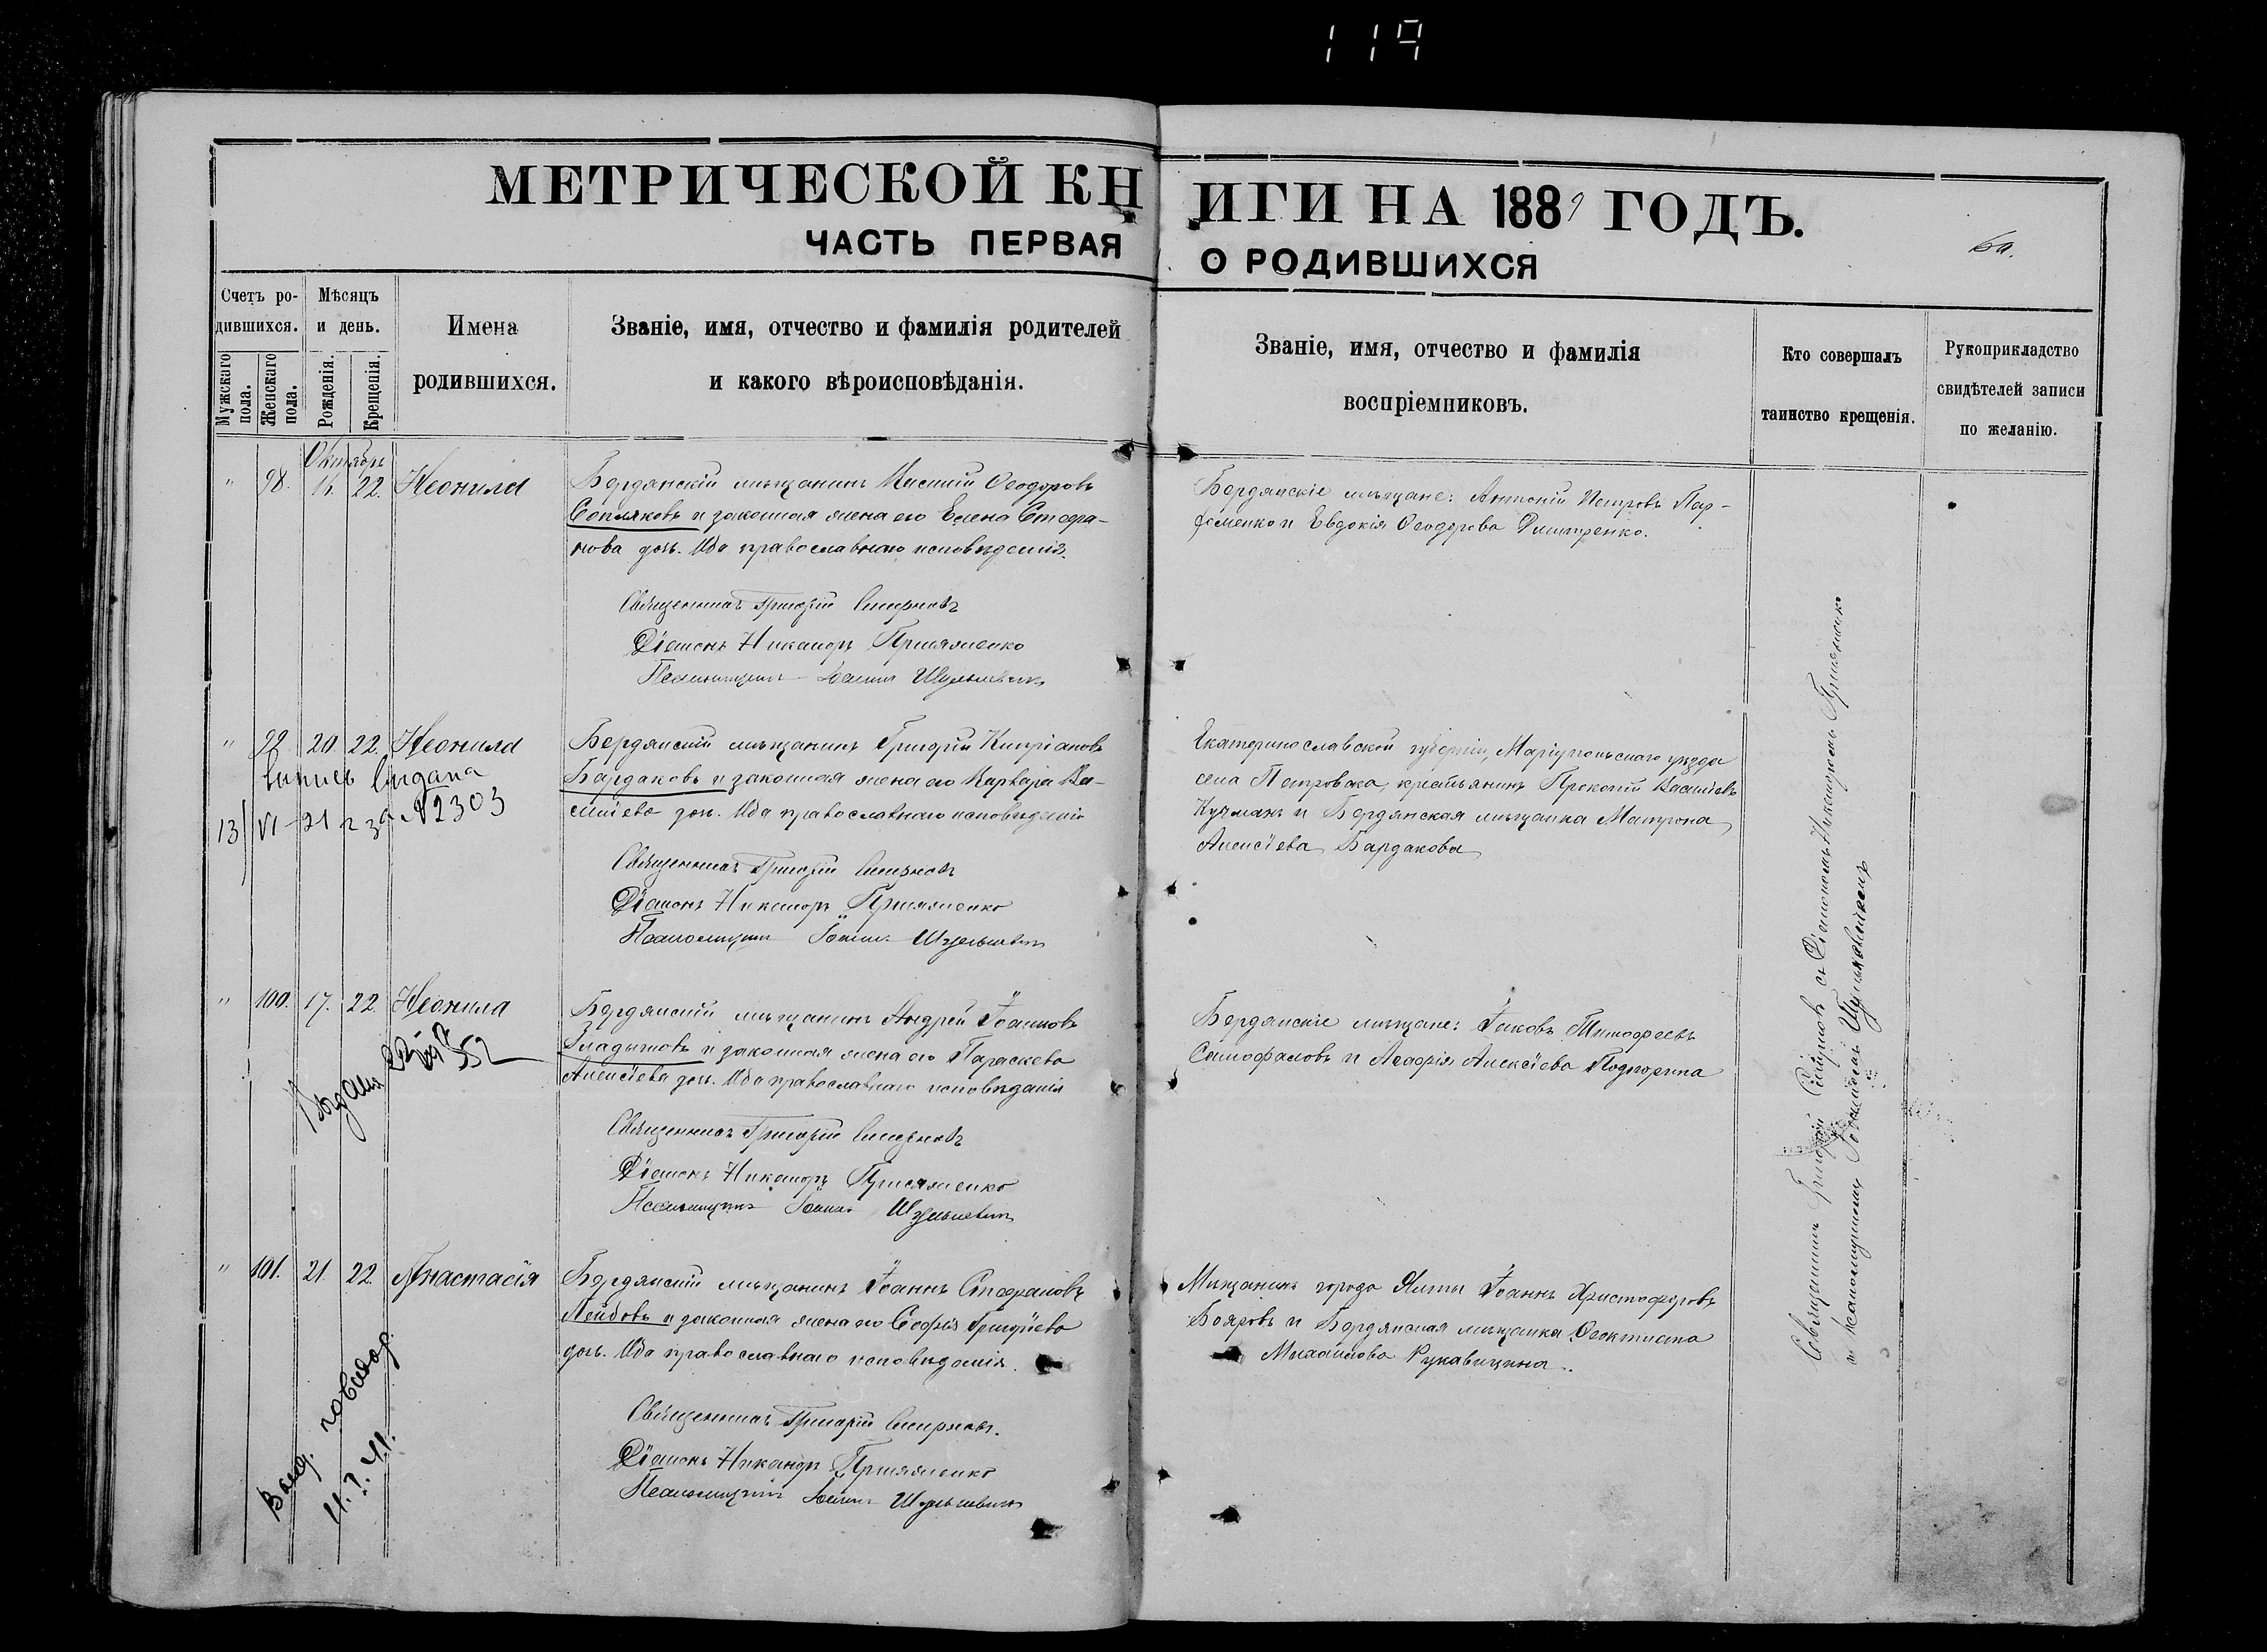 119
МЕТРИЧЕСКОЙ КНИГИ НА 1889 ГОДЪ.
ЧАСТЬ ПЕРВАЯ О РОДИВШИХСЯ
60.
Счетъ родившихся.
Мужскаго пола.
Женскаго пола.
Мѣсяцъ и день.
Рожденія.
Крещенія.
Имена
родившихся.
Званіе, имя, отчество и фамилія родителей
и какого вѣроисповѣданія.
Званіе, имя, отчество и фамилія
воспріемниковъ.
Кто совершалъ
таинство крещенія.
Рукоприкладство
свидѣтелей записи
по желанію.
Октябрь
" 98. 16. 22. Неонила
Бердянскій мѣщанинъ Ѳеодоровъ
Сопляковъ и законная жена его Елена Стефа-
нова дочь. Оба православнаго исповѣданія.
Бердянскіе мѣщане: Антоній Петровъ Пар-
фоменко и Евдокія Ѳеодорова Дмитренко.
Священникъ Григорій Смирновъ
Діаконъ Никаноръ Присяженко
Псаломщикъ Іоаннъ Шульневичъ
" 99. 20. 22. Неонила
Выпись выдана
13/VI-21 г. за №2303
Бердянскій мѣщанинъ Григорій Кипріановъ
Бардаковъ и законная жена его Варвара Ва-
силіева дочь. Оба православнаго исповѣданія
Екатеринославской губерніи, Маріупольскаго уѣзда
села Петровска, крестьянинъ Прокопій Василіевъ
Кучманъ и Бердянская мѣщанка Матрона
Алексіева Бардакова
Священникъ Григорій Смирновъ
Діаконъ Никаноръ Присяженко
Псаломщикъ Іоаннъ Шульневичъ
" 100. 17. 22. Неонила
Выдана
352
Бердянскій мѣщанинъ Андрей Іоанновъ
Гладышовъ и законная жена его Параскева
Алексіева дочь. Оба православнаго исповѣданія
Бердянскіе мѣщане: Іаковъ Тимофеевъ
Самофаловъ и Агафія Алексіева Подгорина
Священникъ Григорій Смирновъ
Діаконъ Никаноръ Присяженко
Псаломщикъ Іоаннъ Шульневичъ
" 101. 21. 22. Анастасія
Бердянскій мѣщанинъ Іоаннъ Стефановъ
Лейбовъ и законная жена его Софія Григоріева
дочь. Оба православнаго исповѣданія.
Мѣщанинъ города Ялты Іоаннъ Христофоровъ
Бояровъ и Бердянская мѣщанка Ѳеоктиста
Михаилова Рукавицина.
Священникъ Григорій Смирновъ.
Діаконъ Никаноръ Присяженко
Псаломщикъ Іоаннъ Шульневичъ
Священникъ Григорій Смирновъ съ Діакономъ Никаноромъ Присяженко
и псаломщикомъ Іоанномъ Шульневичемъ